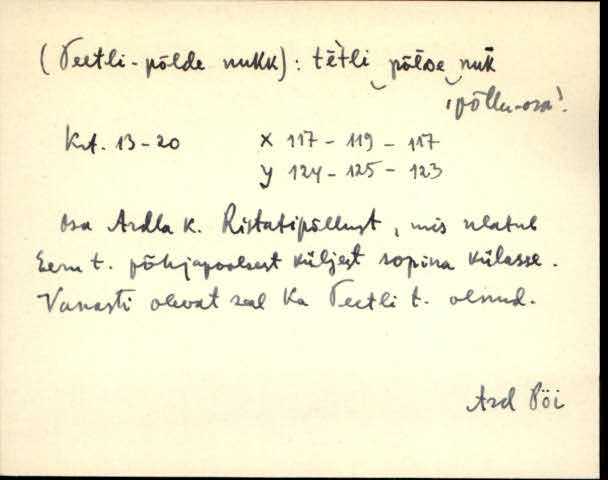 (Teetli-põlde nukk): tētli põlde nuk̄
'põllu-osa'.
Krt. 13-20 X 117 - 119 - 117
y 124 - 125 - 123
Osa Ardla k. Ristatipõllust, mis ulatub
Eeru t. põhjapoolsest küljest sopina külasse.
Vanasti olevat seal ka Teetli t. olnud.
Ard Pöi